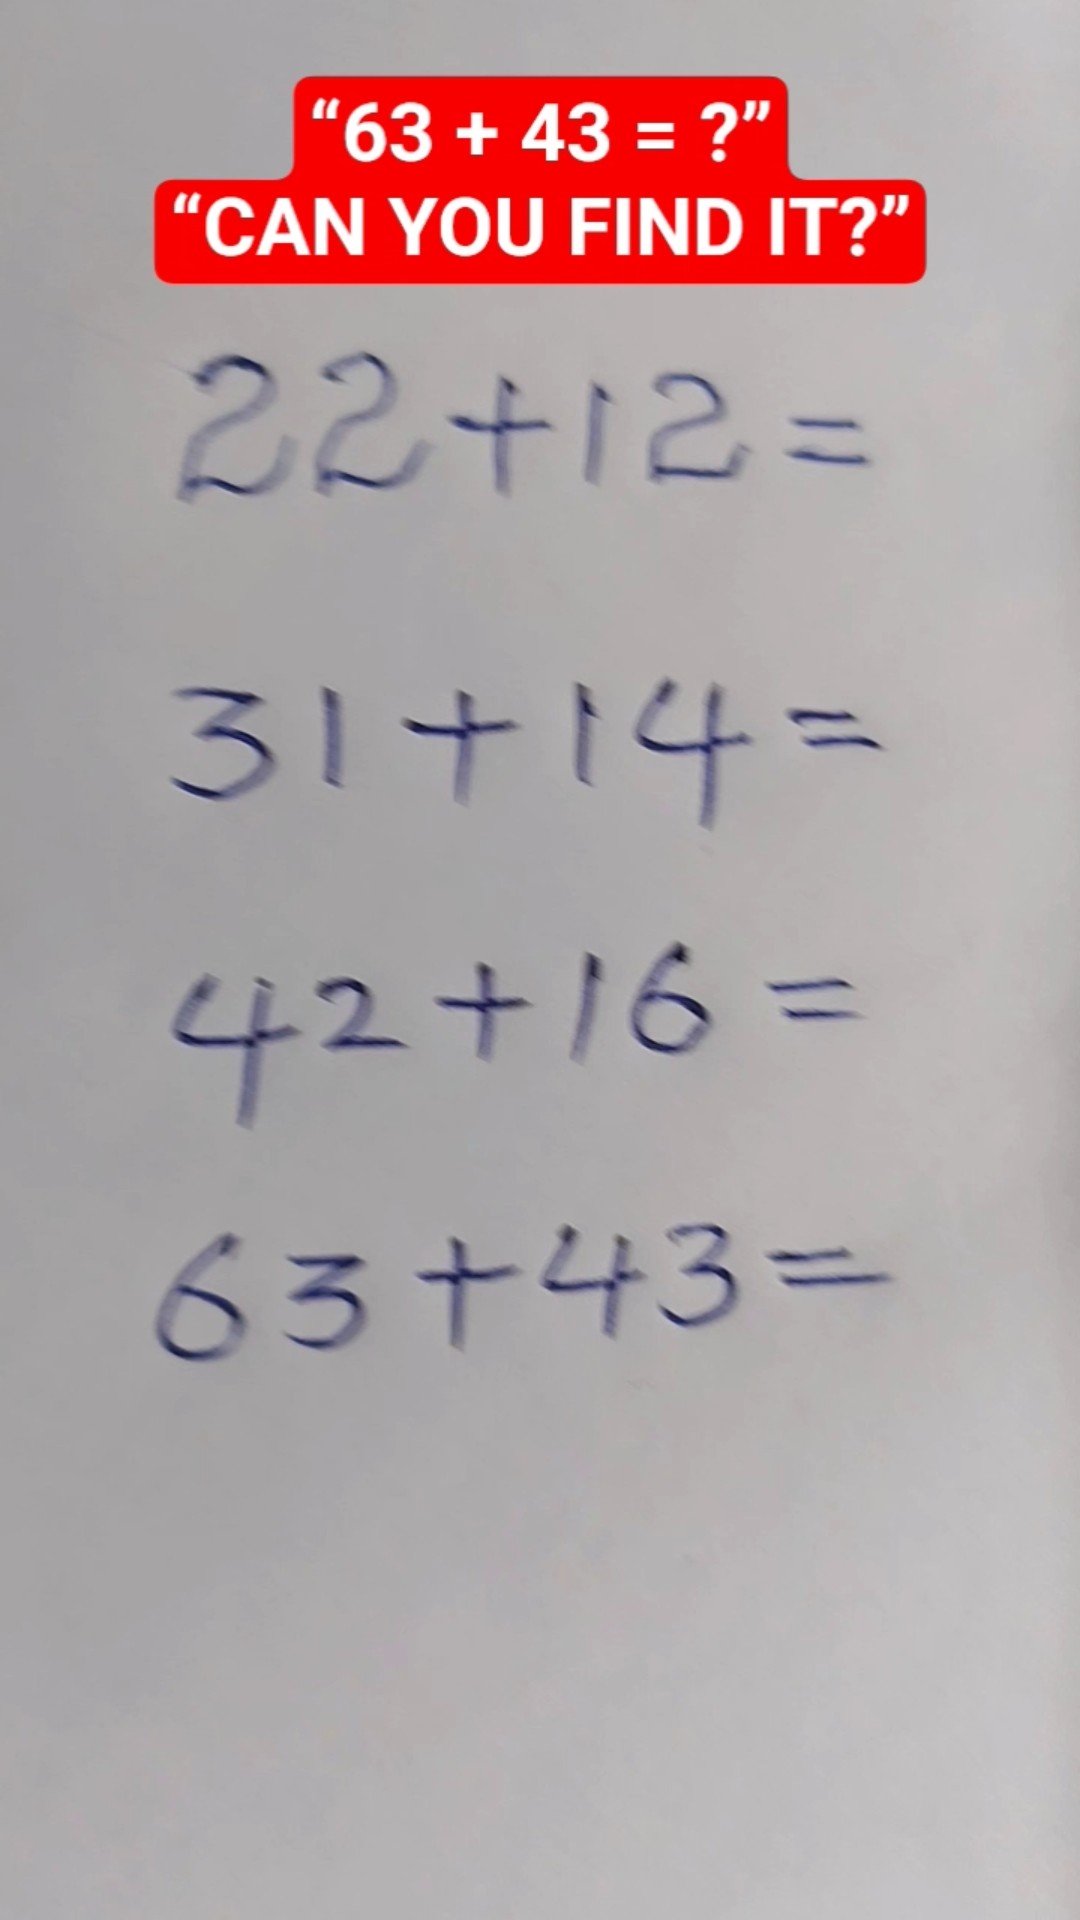 “63 + 43 = ?”
“CAN YOU FIND IT?”
22+12=
31+14=
42+16=
63+43=